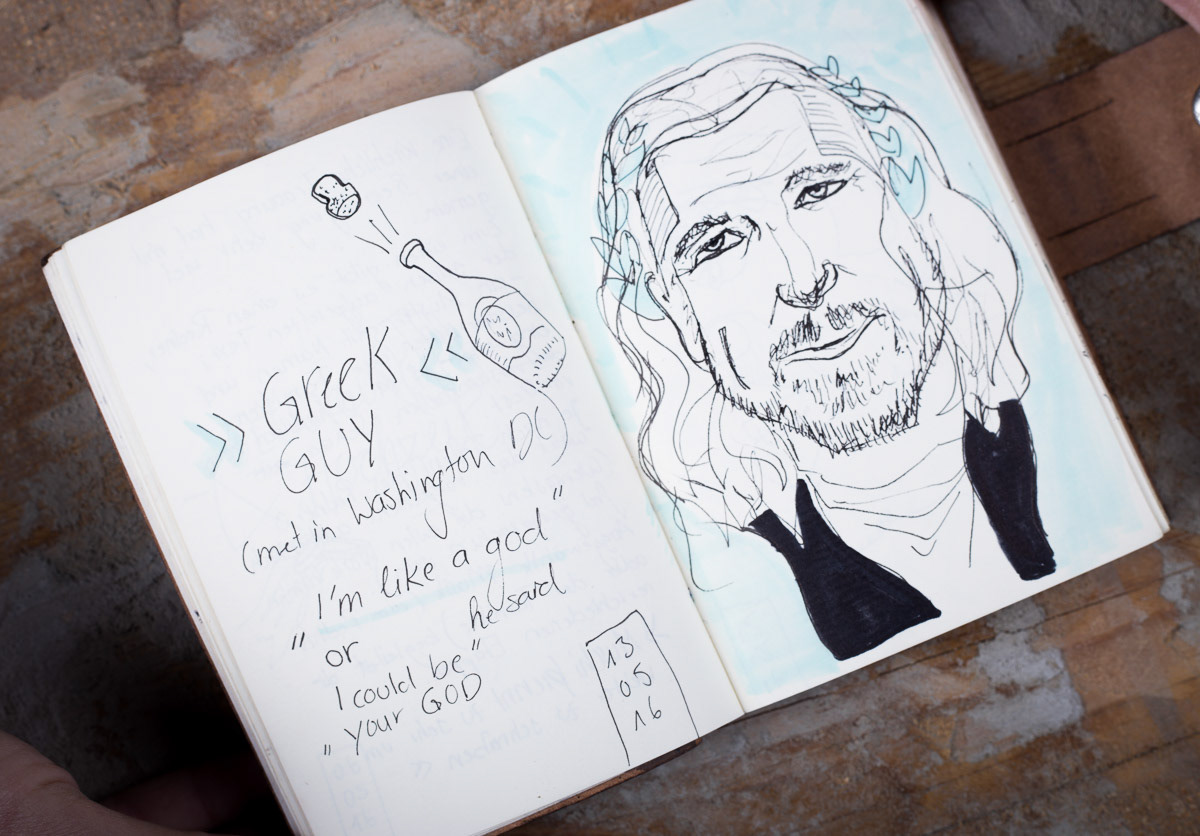 » Greek «
GUY
(met in Washington DC)
"I'm like a god"
or he said
I could be"
„ your GOD
13
05
16